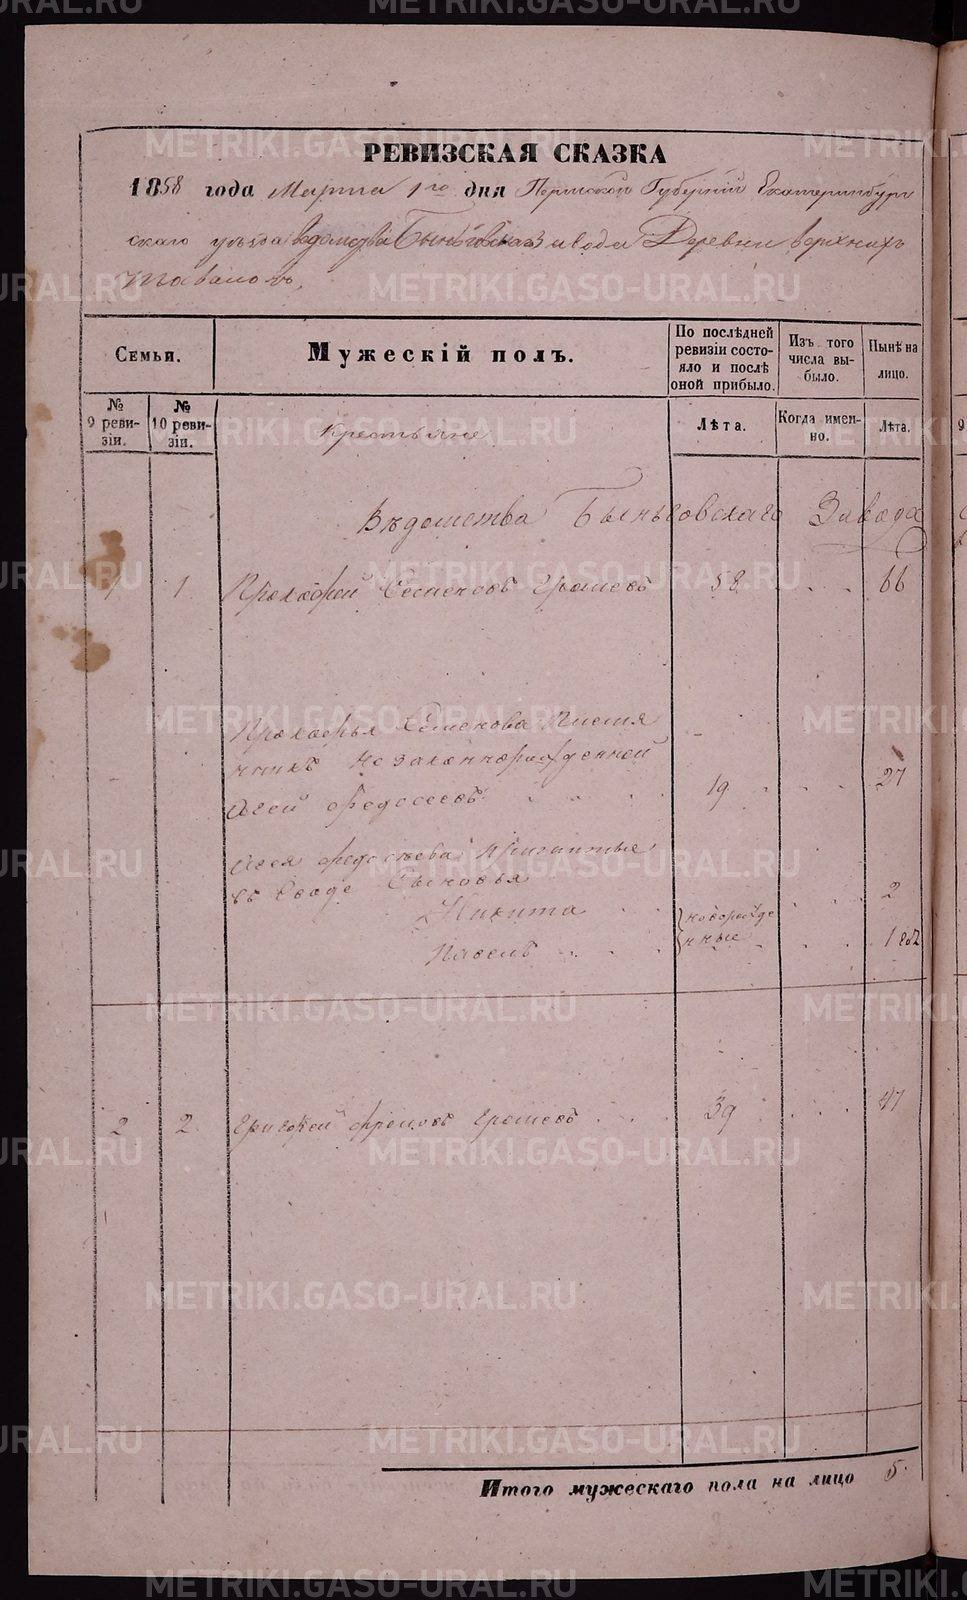 РЕВИЗСКАЯ СКАЗКА
1858 года Марта 1го дня Пермской Губернии Екатеринбург
скаго уѣзда ведомства Быньговскаго Завода Деревни верхнихъ
таваловъ,
Семьи.
Мужескій полъ.
По послѣдней
ревизіи состо-
яло и послѣ
оной прибыло.
Изъ того
числа вы-
было.
Нынѣ на
лицо.
№
9 реви-
зіи.
№
10 реви-
зіи.
Крестьяне
Лѣта.
Когда имен-
но.
Лѣта.
Вѣдомства Быньговскаго Завода
1 1 Прокофей Семеновъ 58 66
Прокофья Семенова
незаконнорожденной
Федосеевъ 19 27
Сыновья
Никита новорожде 2
Павелъ нные 1 год
2 2 Григорей 39 47
Итого мужескаго пола на лицо 5.
METRIKI.GASO-URAL.RU